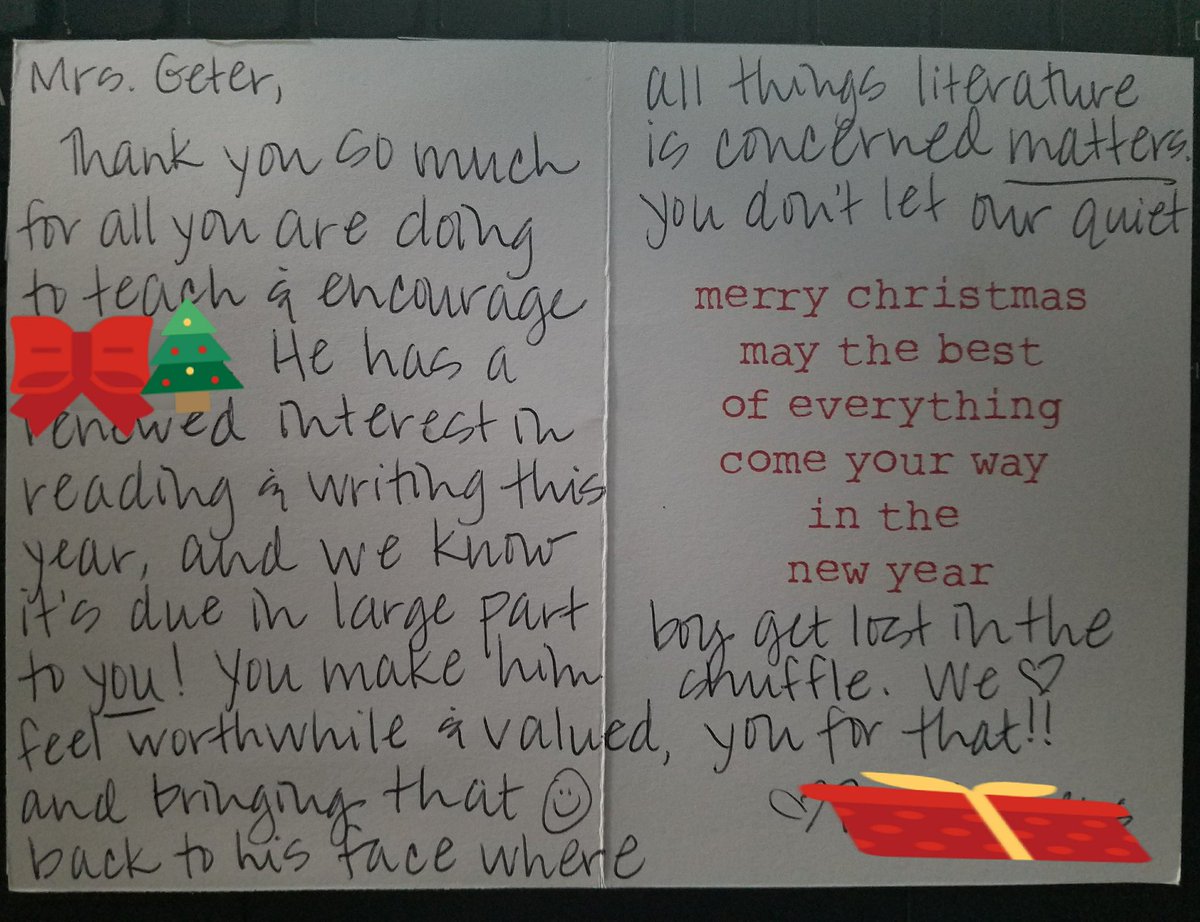 Mrs. Geter,
Thank you so much
for all you are doing
to teach & encourage
He has a
renewed interest in
reading & writing this
year, and we know
it's due in large part
to you! You make him
feel worthwhile & valued,
and bringing that ☺
back to his face where
all things literature
is concerned matters.
you don't let our quiet
merry christmas
may the best
of everything
come your way
in the
new year
boy get lost in the
shuffle. We ♡
you for that!!